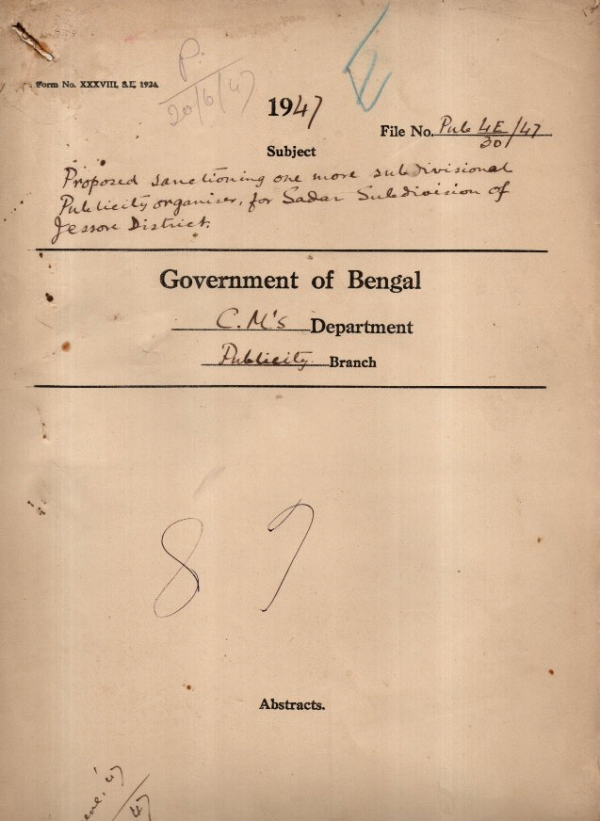 Form No. XXXVIII, S.I., 1926.
P.
20/6/47
E
1947
File No. Pub 4E/47
30
Subject
Proposed sanctioning one more subdivisional
Publicity organiser, for Sadar Subdivision of
Jessore District.
Government of Bengal
C.M's Department
Publicity Branch
87
Abstracts.
47
47